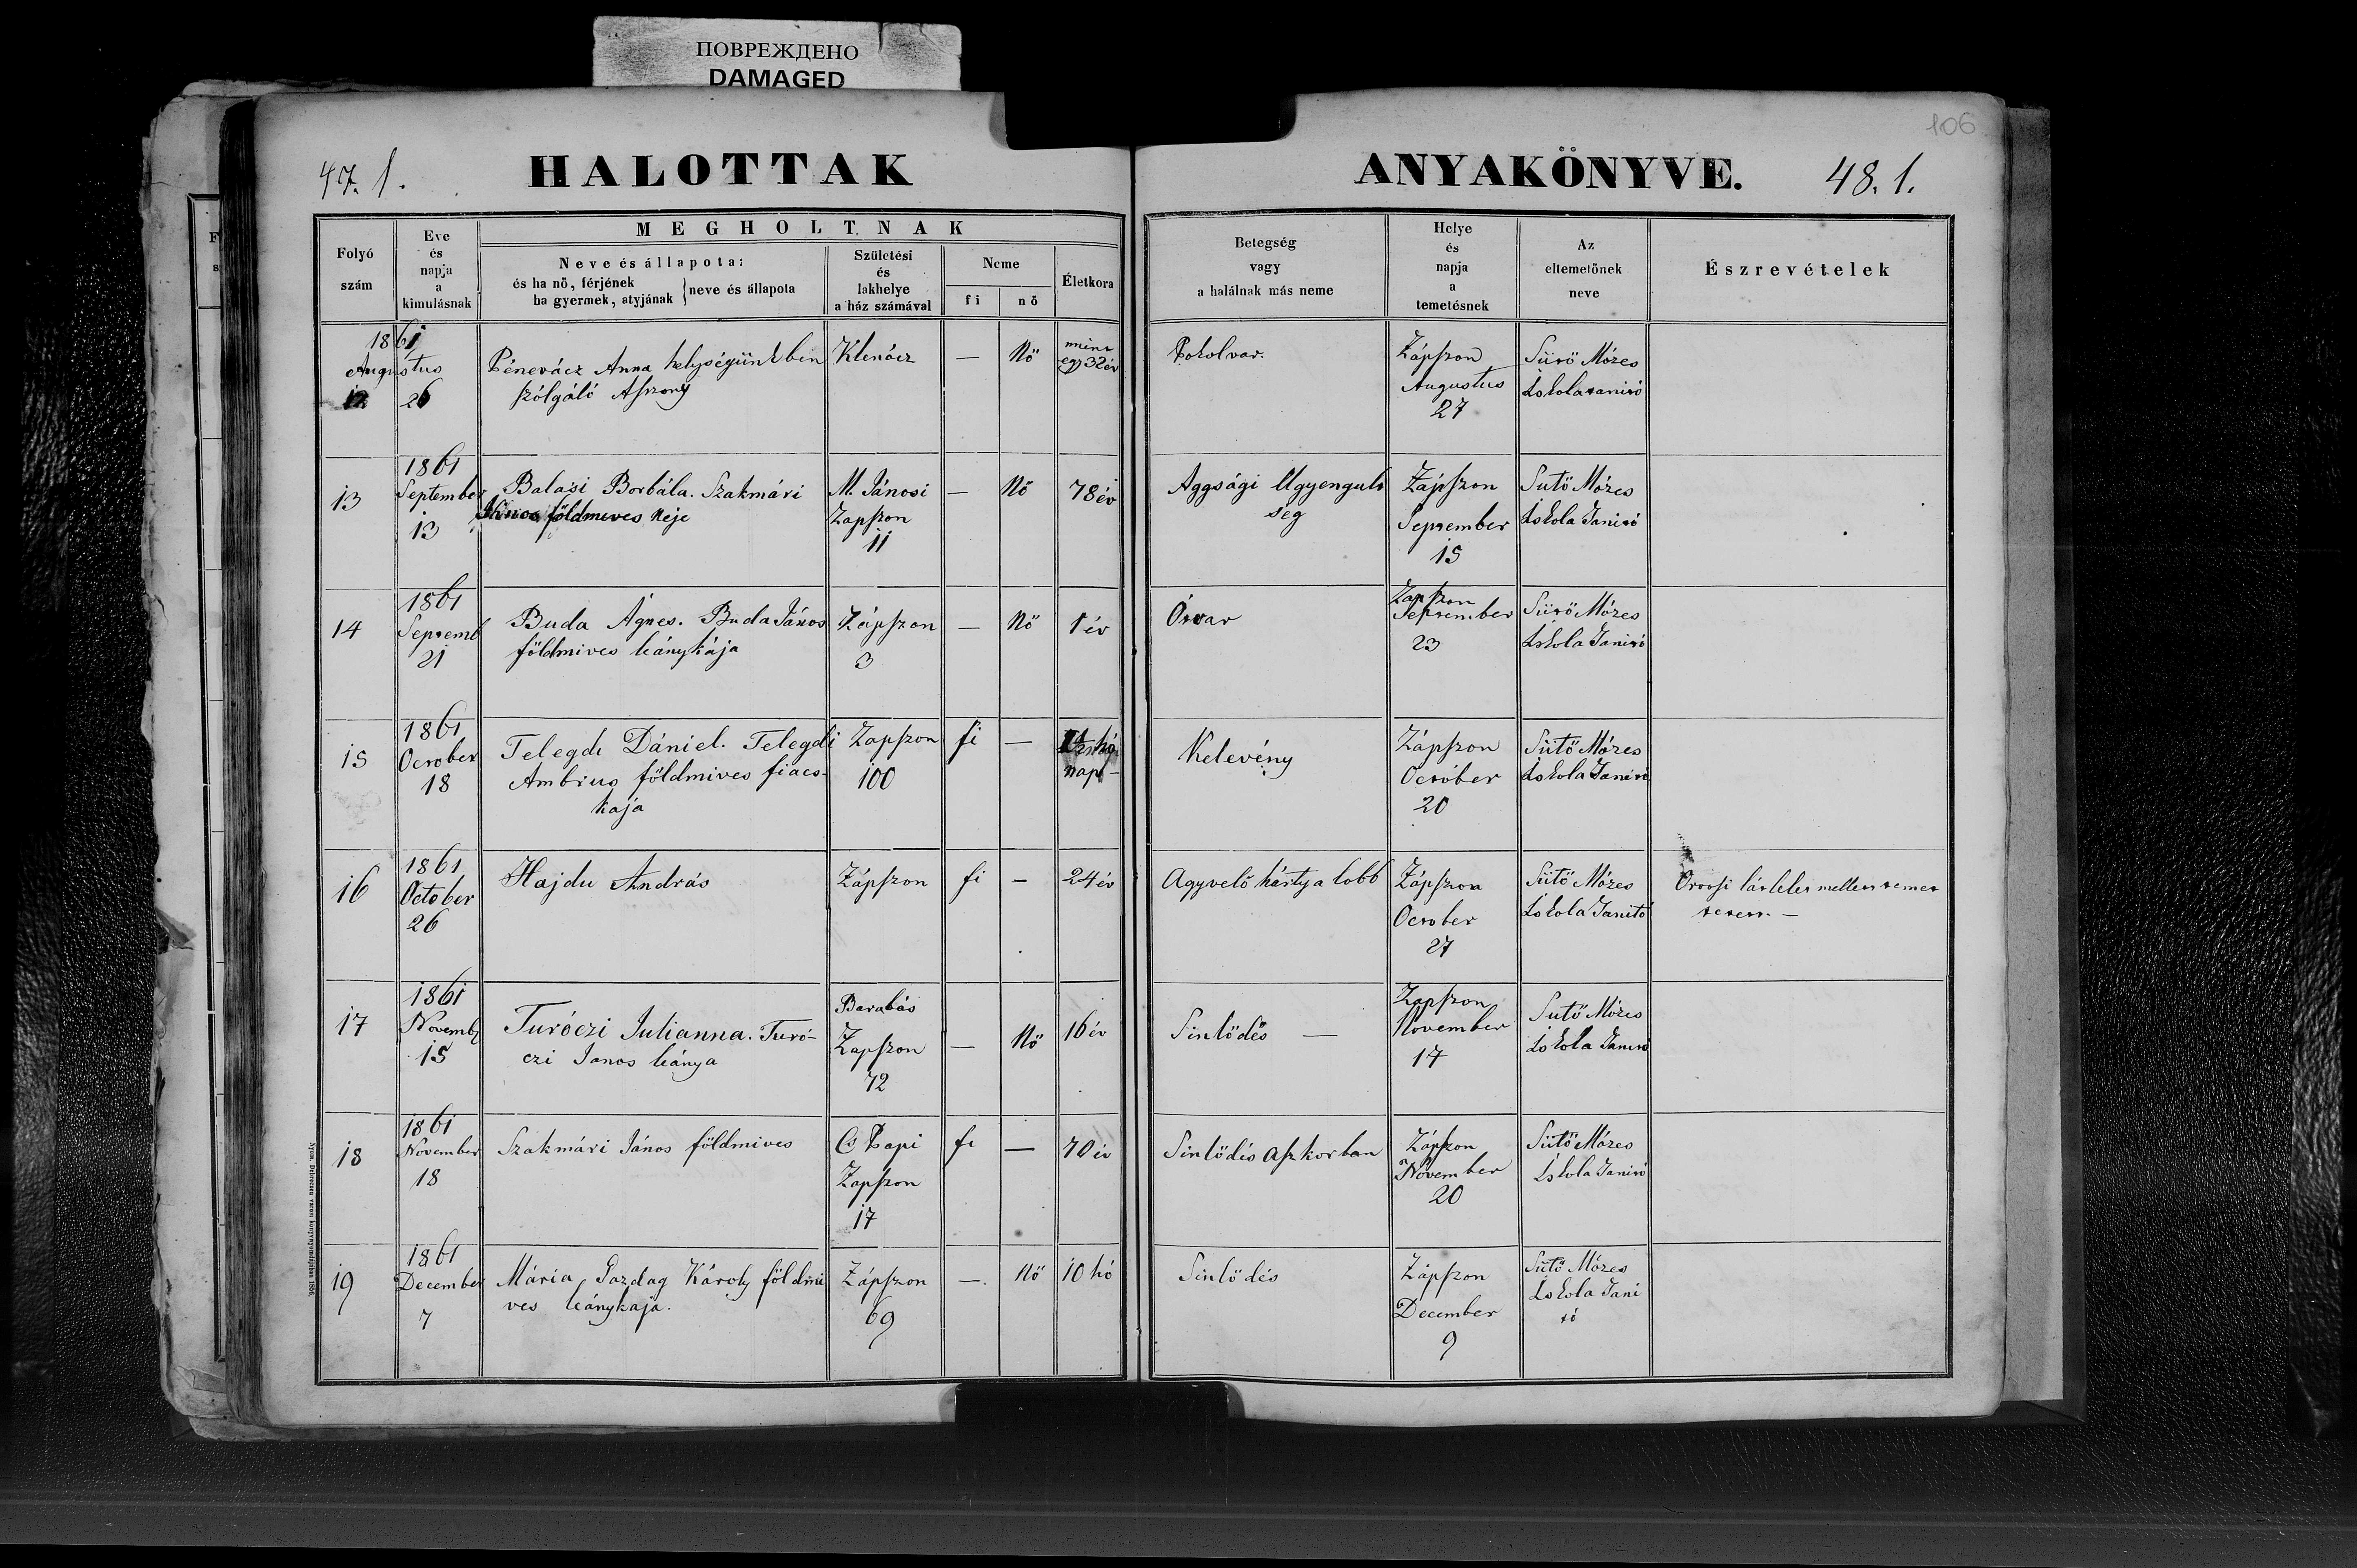 ПОВРЕЖДЕНО
DAMAGED
106
47. l.
HALOTTAK
ANYAKÖNYVE.
48. l.
MEGHOLTNAK
Folyó
szám
Eve
és
napja
a
kimulásnak
Neve és állapota:
és ha nő, férjének
ha gyermek, atyjának
neve és állapota
Születési
és
lakhelye
a ház számával
Neme
fi
nő
Életkora
Betegség
vagy
a halálnak más neme
Helye
és
napja
a
temetésnek
Az
eltemetőnek
neve
Észrevételek
1861
Augustus
12 26
Pénevácz Anna helységünkben
szólgáló Aszszony
Klenócz
—
Nő
mint
egy 32 év
Pokolvar.
Zápszon
Augustus
27
Sütő Mózes
Iskolatanitó
13
1861
September
13
Balási Borbála. Szakmári
János földmives Neje
M. Jánosi
Zapszon
11
—
Nő
78 év
Aggsági Ugyengult
ség
Zápszon
September
15
Sutő Mózes
Iskola Tanitó
14
1861
Septemb
21
Buda Ágnes. Buda János
földmives leánykája
Zápszon
3
—
Nő
1 év
Ótvar
Zapszon
September
23
Sütő Mózes
Iskola Tanitó
15
1861
October
18
Telegdi Dániel. Telegdi
Ambrus földmives fiacs-
kaja
Zapszon
100
fi
—
nap –
Kelevény
Zápszon
Octóber
20
Sütő Mózes
Iskola Tanitó
16
1861
October
26
Hajdu András
Zápszon
fi
–
24 év
Agyvelő hártya lobb
Zápszon
October
27
Sütő Mózes
Iskola Tanitó
Orvosi látlelet mellett temet
tetett. —
17
1861
Novemb
15
Turóczi Julianna. Turó-
czi Janos leánya
Barabás
Zapszon
72
—
Nő
16 év
Sinlődés —
Zapszon
November
17
Sutő Mózes
Iskola Tanitó
18
1861
November
18
Szakmári János földmives
Cs Papi
Zapszon
17
fi
—
70 év
Sinlődés aszkorban
Zápszon
November
20
Sütő Mózes
Iskola Tanitó
19
1861
December
7
Mária, Gazdag Károly földmi
ves leánykaja.
Zápszon
69
—.
Nő
10 hó
Sinlődés
Zápszon
December
9
Sütő Mózes
Iskola Tani
tó
Nyom. Debreczen város könyvnyomdájában 1856.